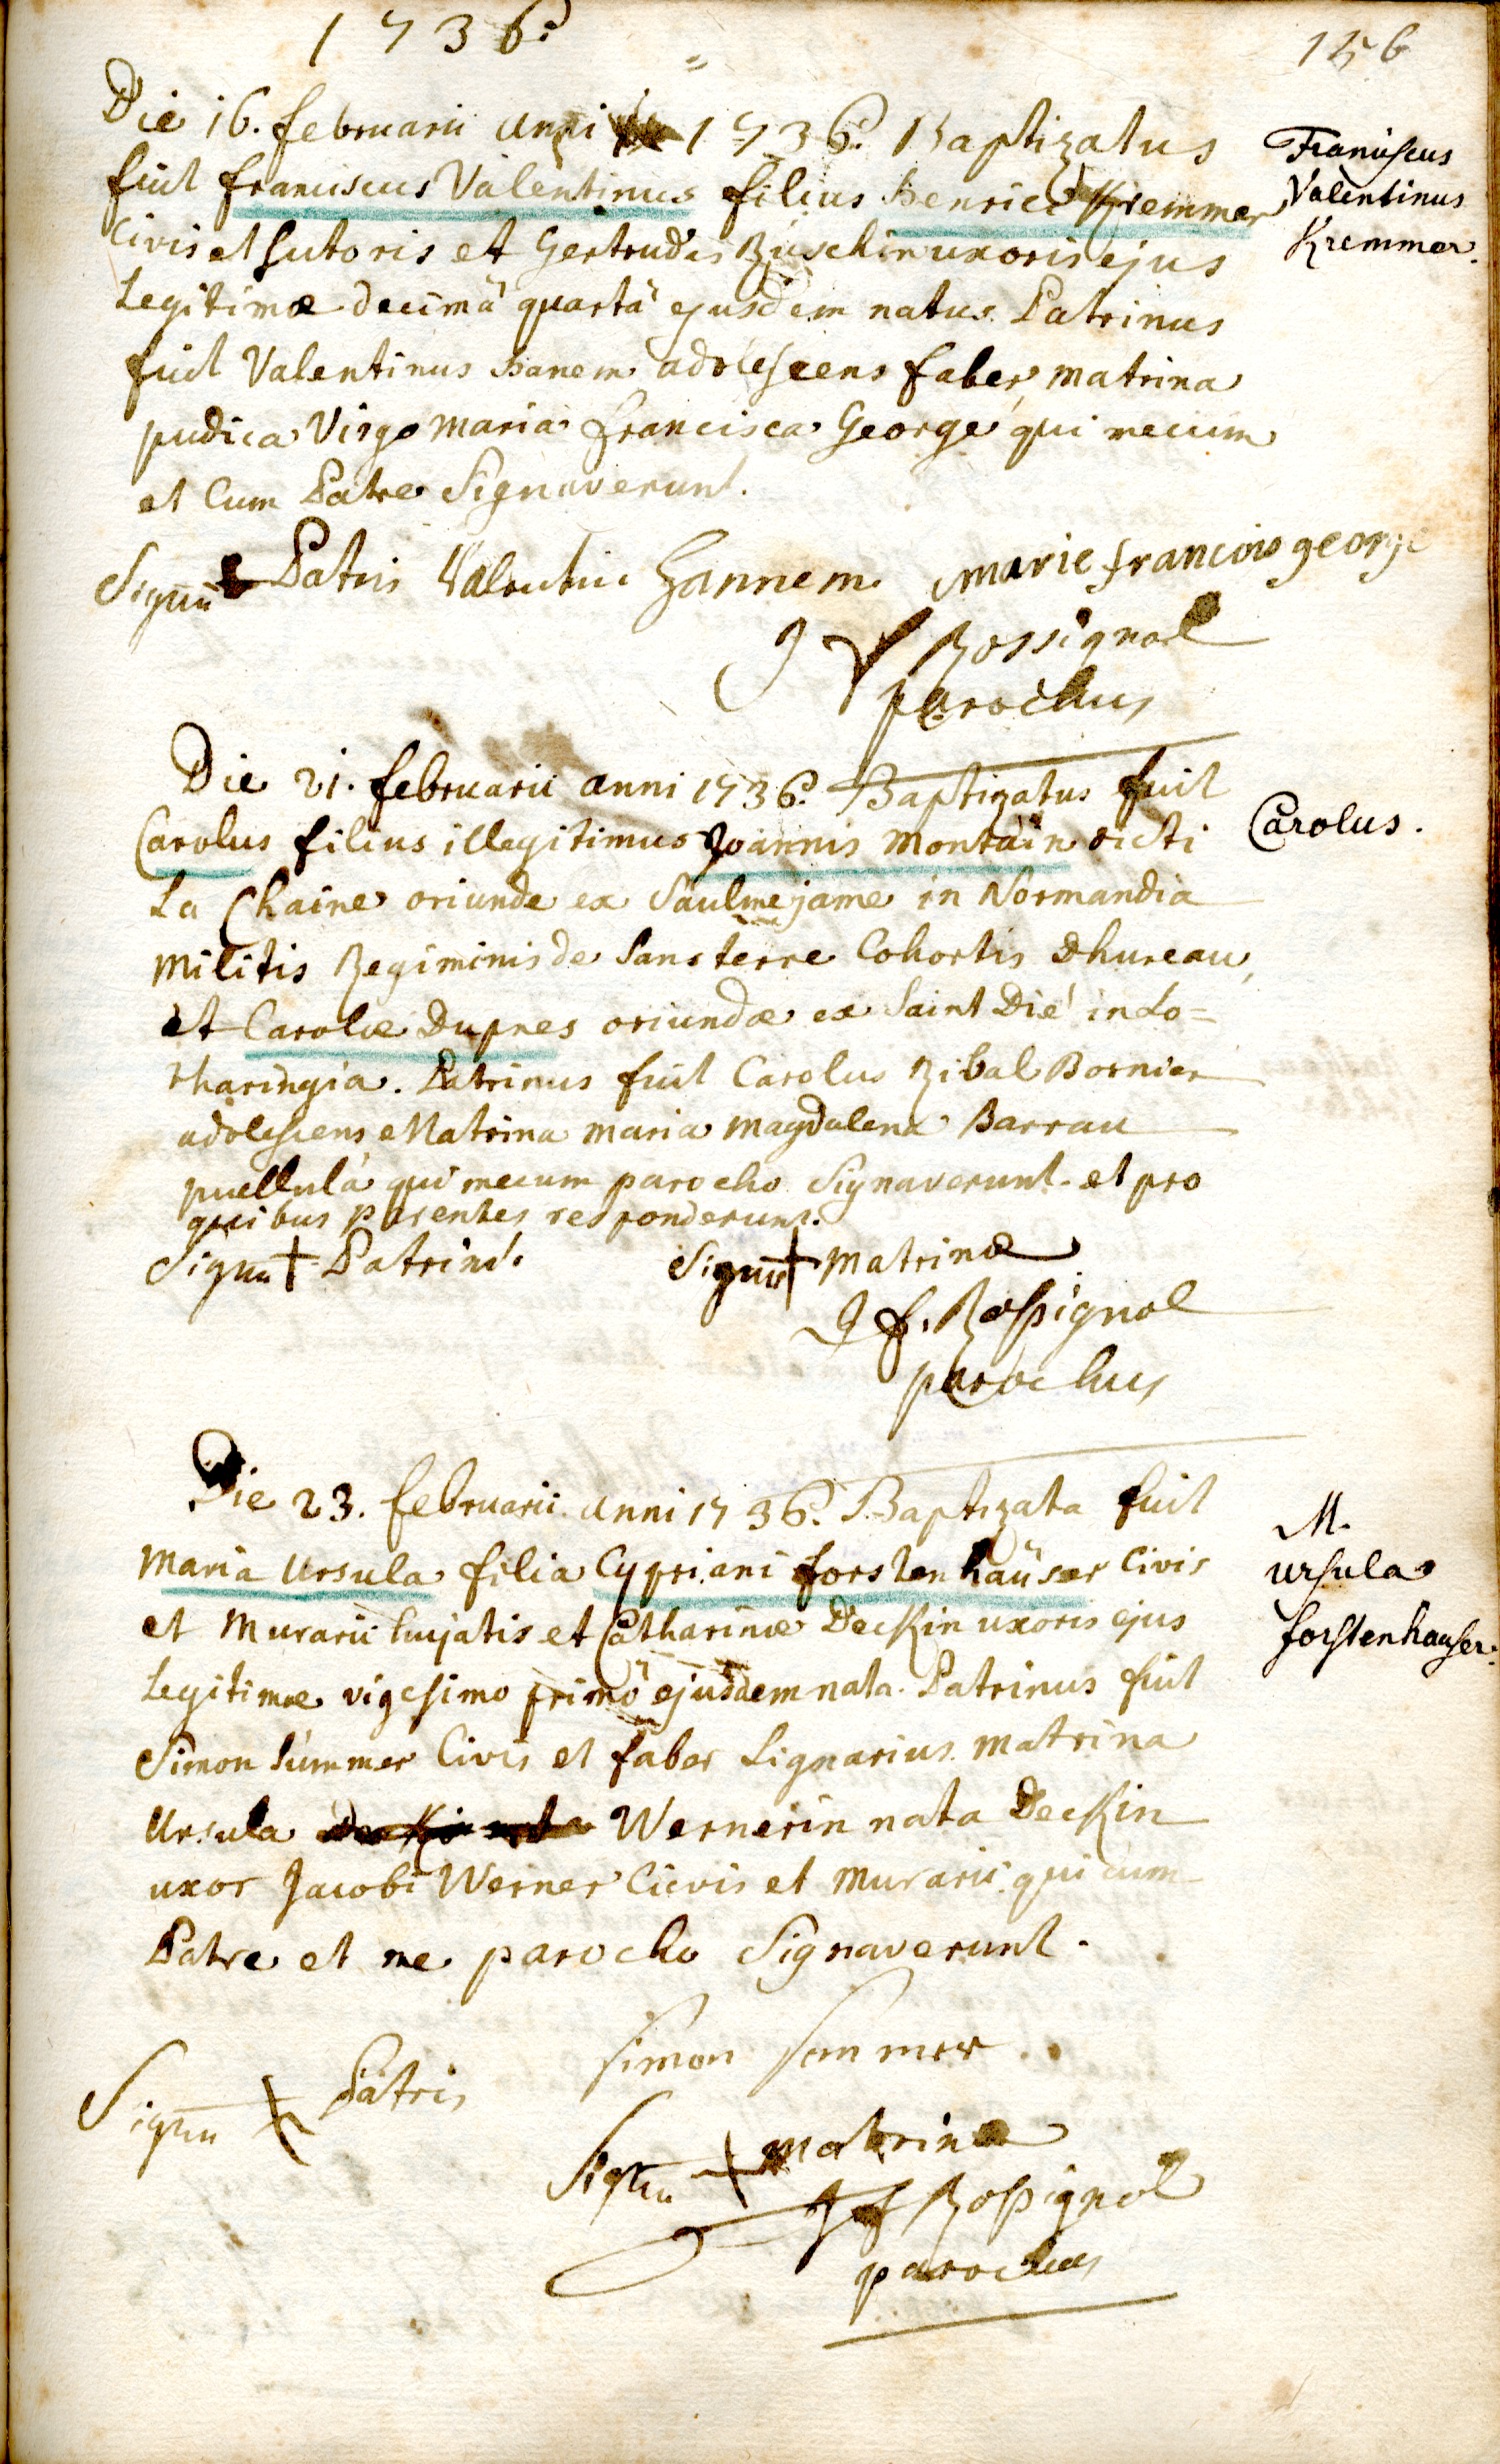 1736.
156
Die 16. februarii anni 1736. Baptizatus
fuit franciscus Valentinus filius henrici Kremmer
Civis et sutoris et Gertrudis Büschin uxoris ejus
Legitimæ decimâ quartâ ejusdem natus. Patrinus
fuit Valentinus hanem adolescens faber, matrina
pudica Virgo maria francisca George qui mecum
et Cum Patre Signaverunt.
Franciscus
Valentinus
Kremmer.
Signū Patris Valentin hannem marie francois george
J f Rossignol
parochus
Die 21. februarii anni 1736. Baptizatus fuit
Carolus filius illegitimus Joannis Montain dicti
La Chaine oriunde ex Saulmejame in Normandia
Militis Regiminis de Sansterre Cohortis Dhureau,
et Carolæ Dupnes oriundæ ex Saint Dié in Lo=
tharingia. Patrinus fuit Carolus Ribal Bornier
adolescens Matrina maria magdalena Barrau
puellula qui mecum parocho Signaverunt. et pro
quibus parentes responderunt.
Carolus.
Signū + Patrini. Signū + Matrinæ
J f. Rossignol
parochus
Die 23. februarii anni 1736. Baptizata fuit
Maria Ursula filia Cypriani forstenhaüser Civis
et Murarii hujatis et Catharinæ Deckin uxoris ejus
Legitimæ vigesimo primo ejusdem nata. Patrinus fuit
Simon Summer Civis et faber Lignarius. Matrina
Ursula Wernerin nata Deckin
uxor Jacobi Werner Cievis et Murarii qui cum
Patre et me parocho Signaverunt.
M.
ursula
forstenhauser.
Signū + Patris simon sommer
Signū + matrinæ
J f Rossignol
parochus